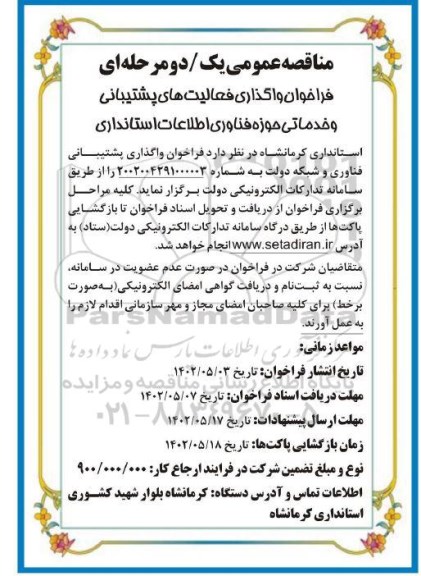 مناقصه عمومی یک/دو مرحله‌ای
فراخوان واگذاری فعالیت‌های پشتیبانی
و خدماتی حوزه فناوری اطلاعات استانداری
استانداری کرمانشاه در نظر دارد فراخوان واگذاری پشتیبانی
فناوری و شبکه دولت به شماره ۲۰۰۲۰۰۴۲۹۱۰۰۰۰۰۳ را از طریق
سامانه تدارکات الکترونیکی دولت برگزار نماید. کلیه مراحل
برگزاری فراخوان از دریافت و تحویل اسناد فراخوان تا بازگشایی
پاکت‌ها از طریق درگاه سامانه تدارکات الکترونیکی دولت(ستاد) به
آدرس www.setadiran.ir انجام خواهد شد.
متقاضیان شرکت در فراخوان در صورت عدم عضویت در سامانه،
نسبت به ثبت‌نام و دریافت گواهی امضای الکترونیکی(به‌صورت
برخط) برای کلیه صاحبان امضای مجاز و مهر سازمانی اقدام لازم را
به عمل آورند.
ParsNamadData
مواعد زمانی:
تاریخ انتشار فراخوان: تاریخ ۱۴۰۲/۰۵/۰۳
پایگاه اطلاع رسانی مناقصه و مزایده
مهلت دریافت اسناد فراخوان: تاریخ ۱۴۰۲/۰۵/۰۷
مهلت ارسال پیشنهادات: تاریخ ۱۴۰۲/۰۵/۱۷
زمان بازگشایی پاکت‌ها: تاریخ ۱۴۰۲/۰۵/۱۸
نوع و مبلغ تضمین شرکت در فرایند ارجاع کار: ۹۰۰/۰۰۰/۰۰۰
اطلاعات تماس و آدرس دستگاه: کرمانشاه بلوار شهید کشوری
استانداری کرمانشاه